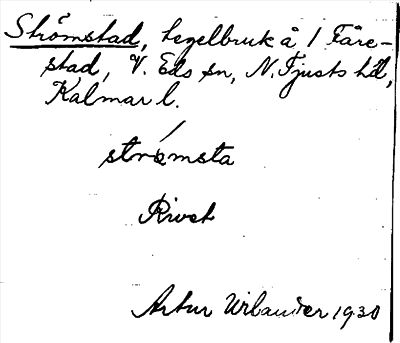 Strömstad, tegelbruk å 1 Färe-
stad, V. Eds sn, N. Tjusts hd,
Kalmar l.
strømsta
Rivet
Artur Wilander 1930